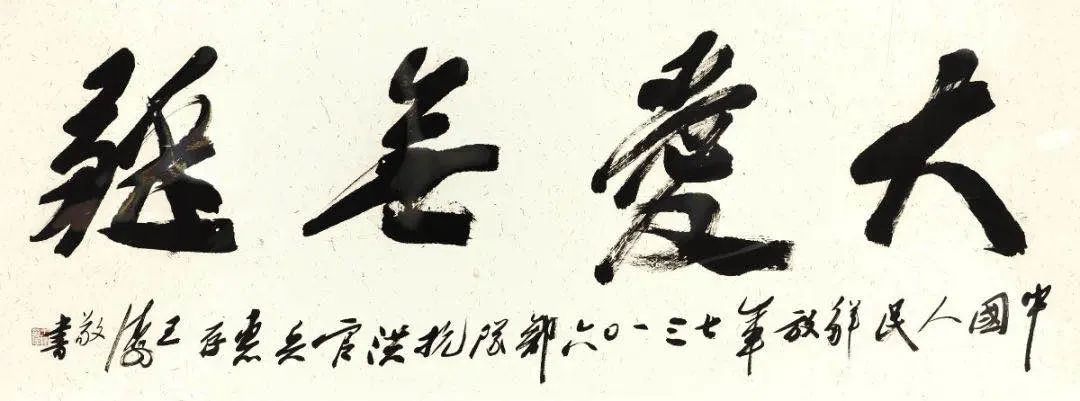 大愛無疆
中國人民解放軍七三一〇六部隊抗洪官兵惠存 王 敬書